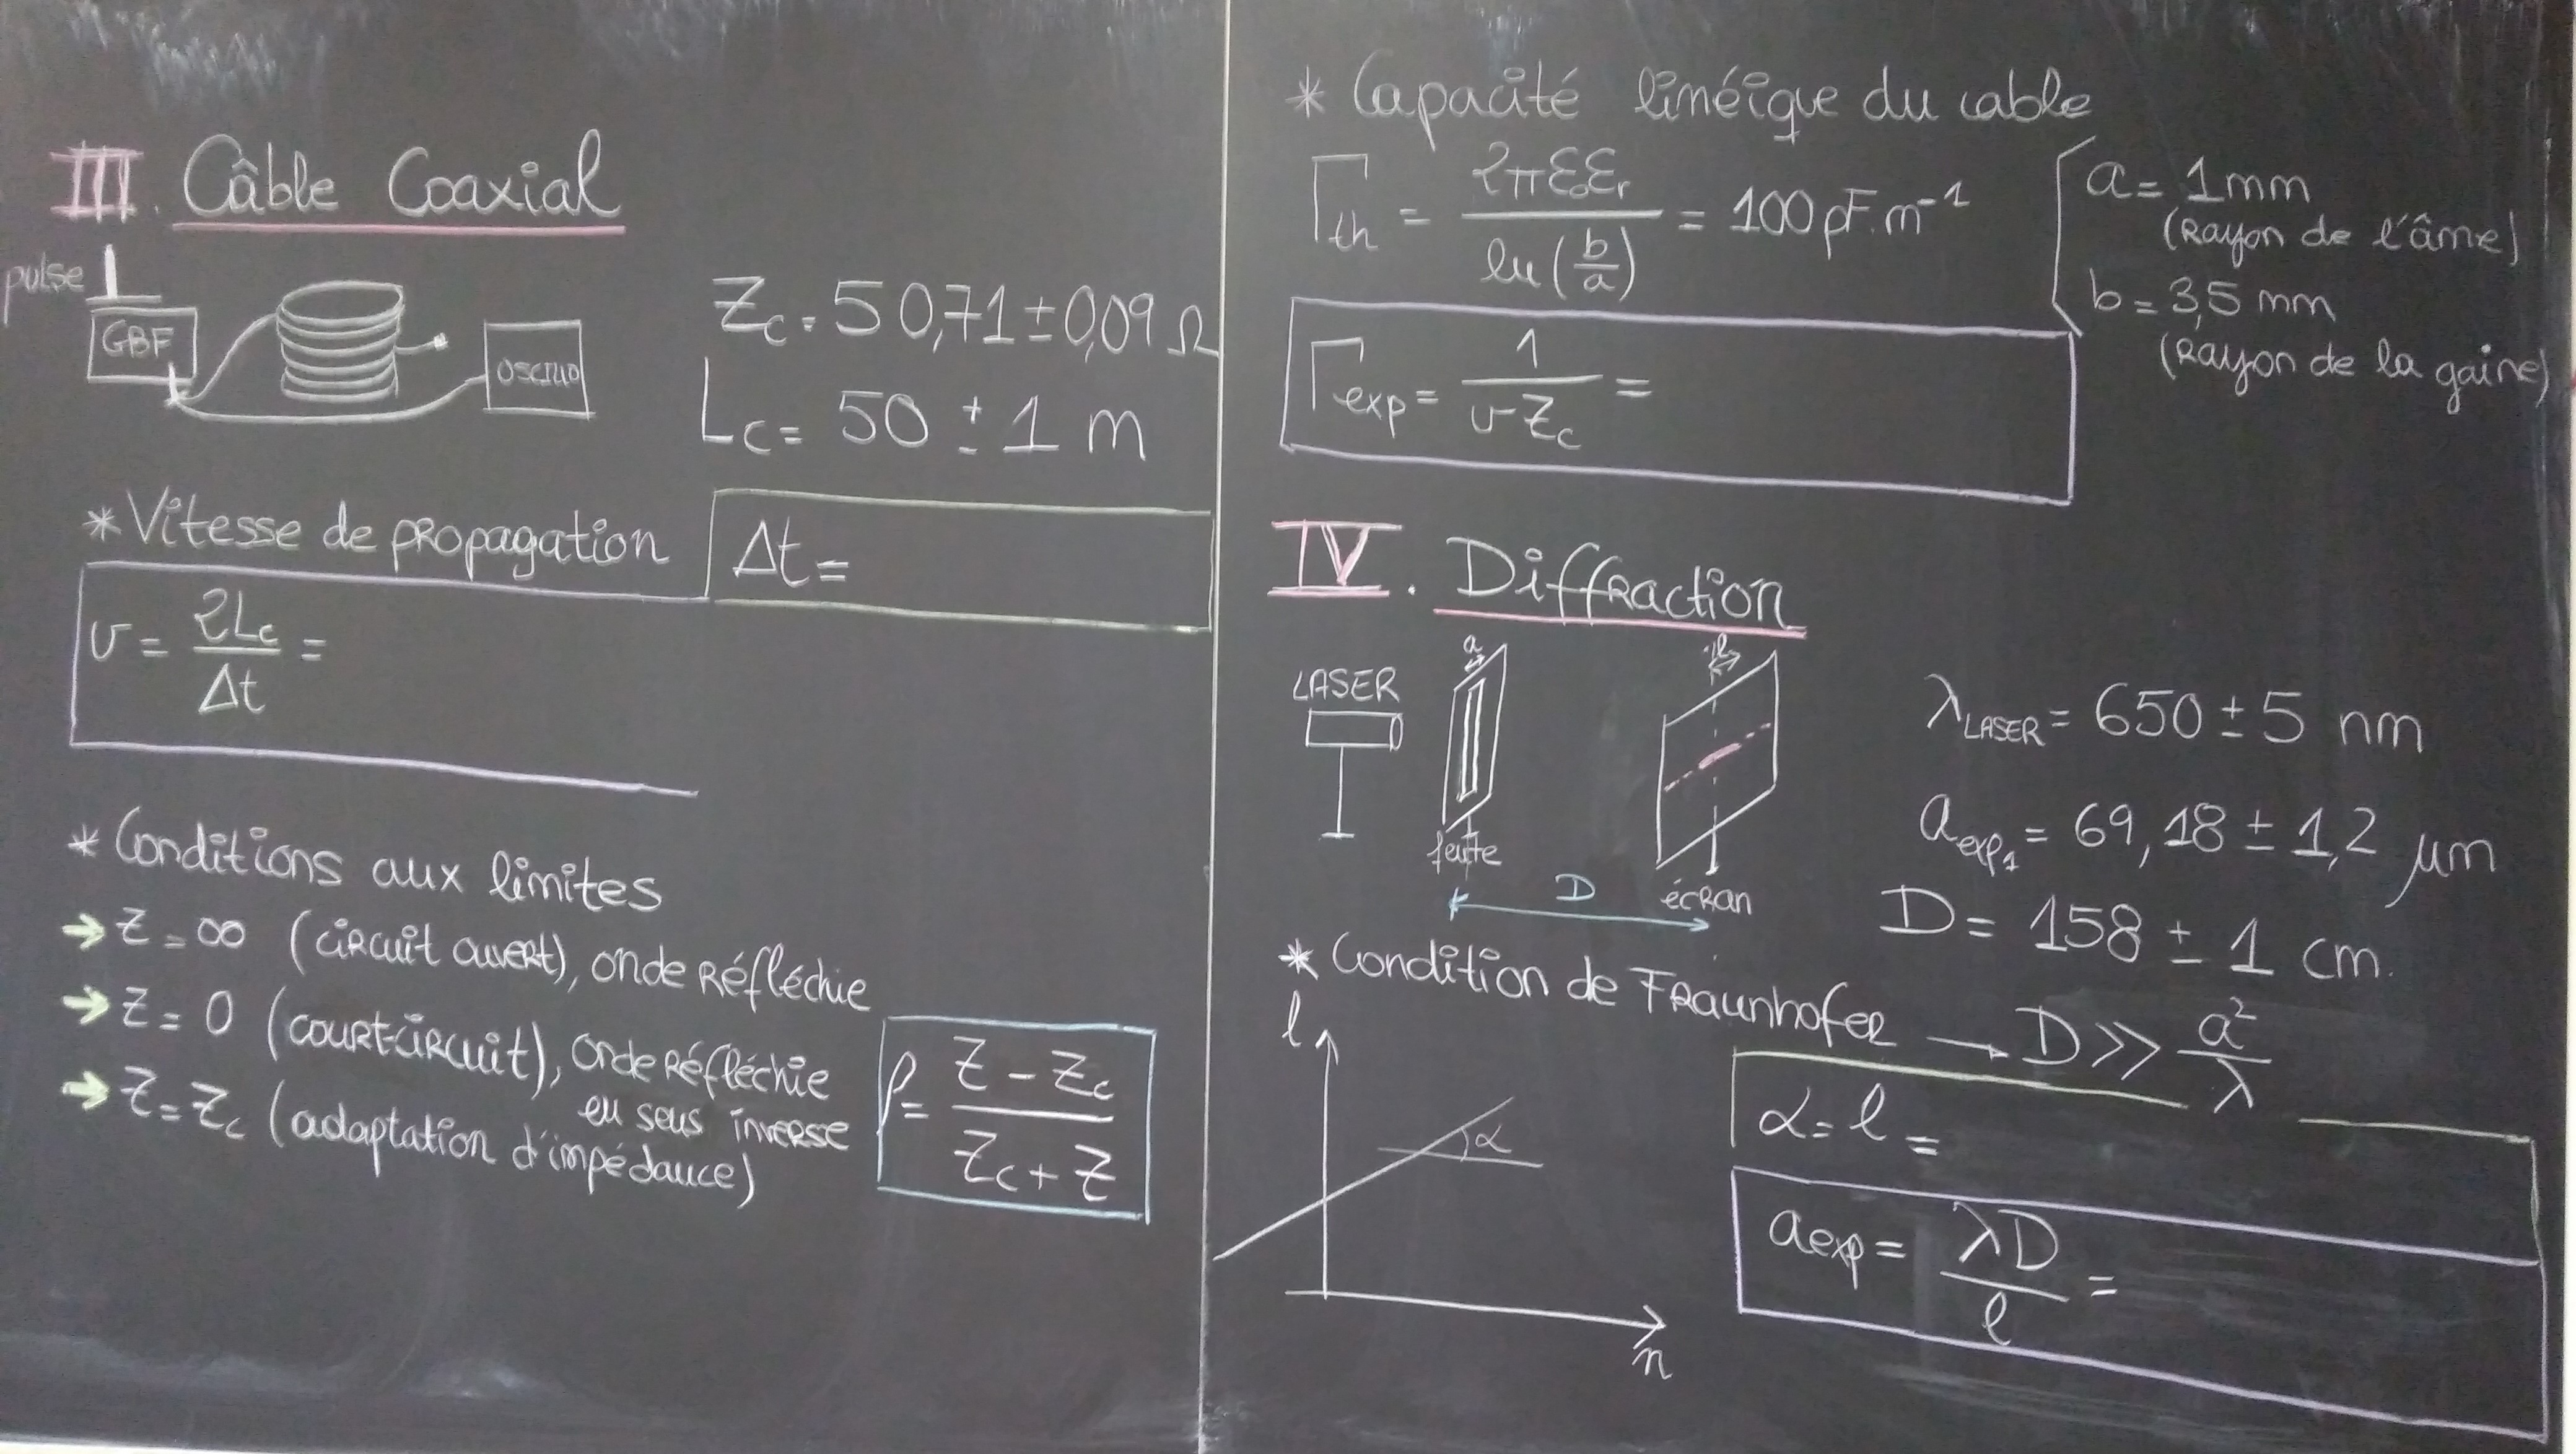 III. Câble Coaxial
pulse
GBF
OSCILLO
Zc = 50,71 ± 0,09 Ω
Lc = 50 ± 1 m
* Vitesse de propagation
Δt =
v = 2Lc / Δt =
* Conditions aux limites
→ Z = ∞ (circuit ouvert), onde réfléchie
→ Z = 0 (court-circuit), onde réfléchie
en sens inverse
→ Z = Zc (adaptation d'impédance)
ρ = (Z - Zc) / (Zc + Z)
* Capacité linéique du cable
Γth = 2πε₀εr / ln(b/a) = 100 pF.m⁻¹
a = 1 mm
(Rayon de l'âme)
b = 3,5 mm
(Rayon de la gaine)
Γexp = 1 / (v Zc) =
IV. Diffraction
LASER
a
fente
l
écran
D
λLASER = 650 ± 5 nm
aexp1 = 69,18 ± 1,2 μm
D = 158 ± 1 cm.
* Condition de Fraunhofer → D >> a² / λ
l
α
n
α = l =
aexp = λD / l =